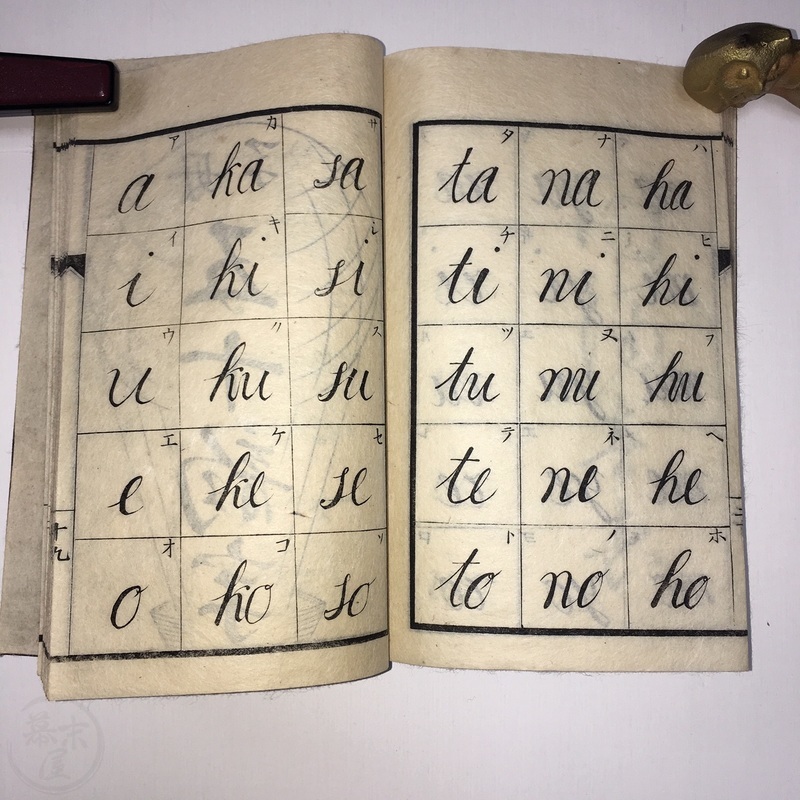 ア カ サ
a ka sa
イ キ シ
i ki si
ウ ク ス
u ku su
エ ケ セ
e ke se
オ コ ソ
o ko so
タ ナ ハ
ta na ha
チ ニ ヒ
ti ni hi
ツ ヌ フ
tu nu hu
テ ネ ヘ
te ne he
ト ノ ホ
to no ho
幕末屋